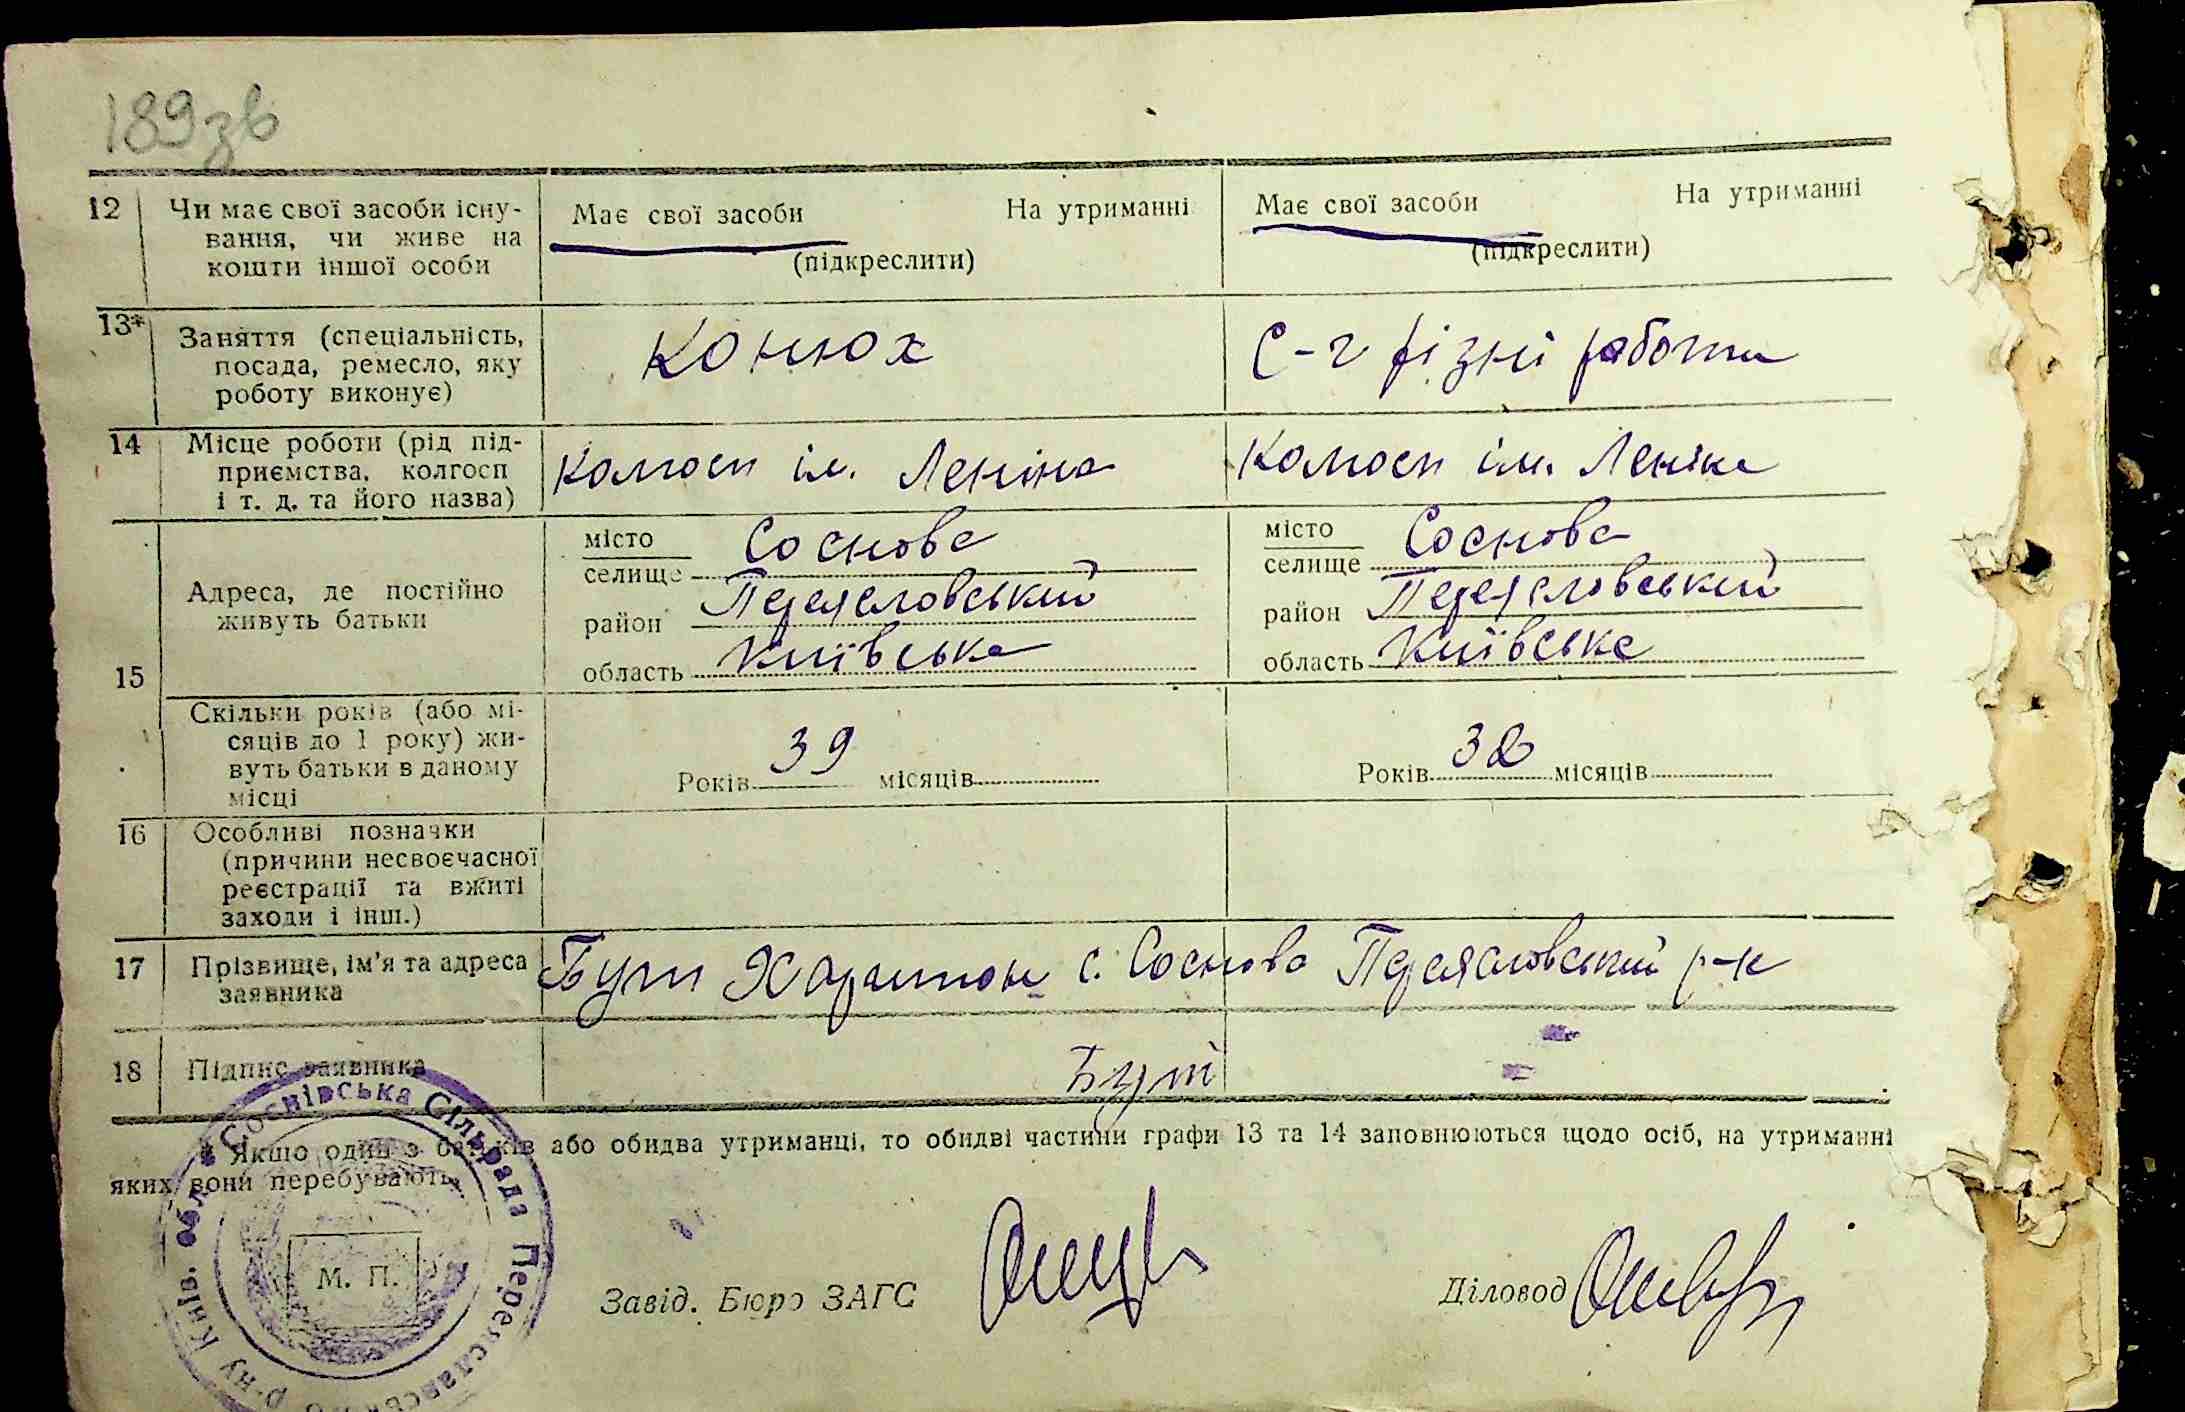 189зв
12 Чи має свої засоби існу-
вання, чи живе на
кошти іншої особи
Має свої засоби На утриманні
(підкреслити)
Має свої засоби На утриманні
(підкреслити)
13* Заняття (спеціальність,
посада, ремесло, яку
роботу виконує)
Конюх
С-г різні работи
14 Місце роботи (рід під-
приємства, колгосп
і т. д. та його назва)
Колгосп ім. Леніна
Колгосп ім. Леніна
15 Адреса, де постійно
живуть батьки
місто
селище Соснова
район Переяславський
область Київська
місто
селище Соснова
район Переяславський
область Київська
Скільки років (або мі-
сяців до 1 року) жи-
вуть батьки в даному
місці
Років 39 місяців
Років 32 місяців
16 Особливі позначки
(причини несвоєчасної
реєстрації та вжиті
заходи і інш.)
17 Прізвище, ім'я та адреса
заявника
Бут Харитон с. Соснова Переяславський р-н
18 Підпис заявника
Бут
* Якщо один з батьків або обидва утриманці, то обидві частини графи 13 та 14 заповнюються щодо осіб, на утриманні
яких вони перебувають.
Соснівська Сільрада Переяславського р-ну Київ. обл.
М. П.
Завід. Бюро ЗАГС
Діловод